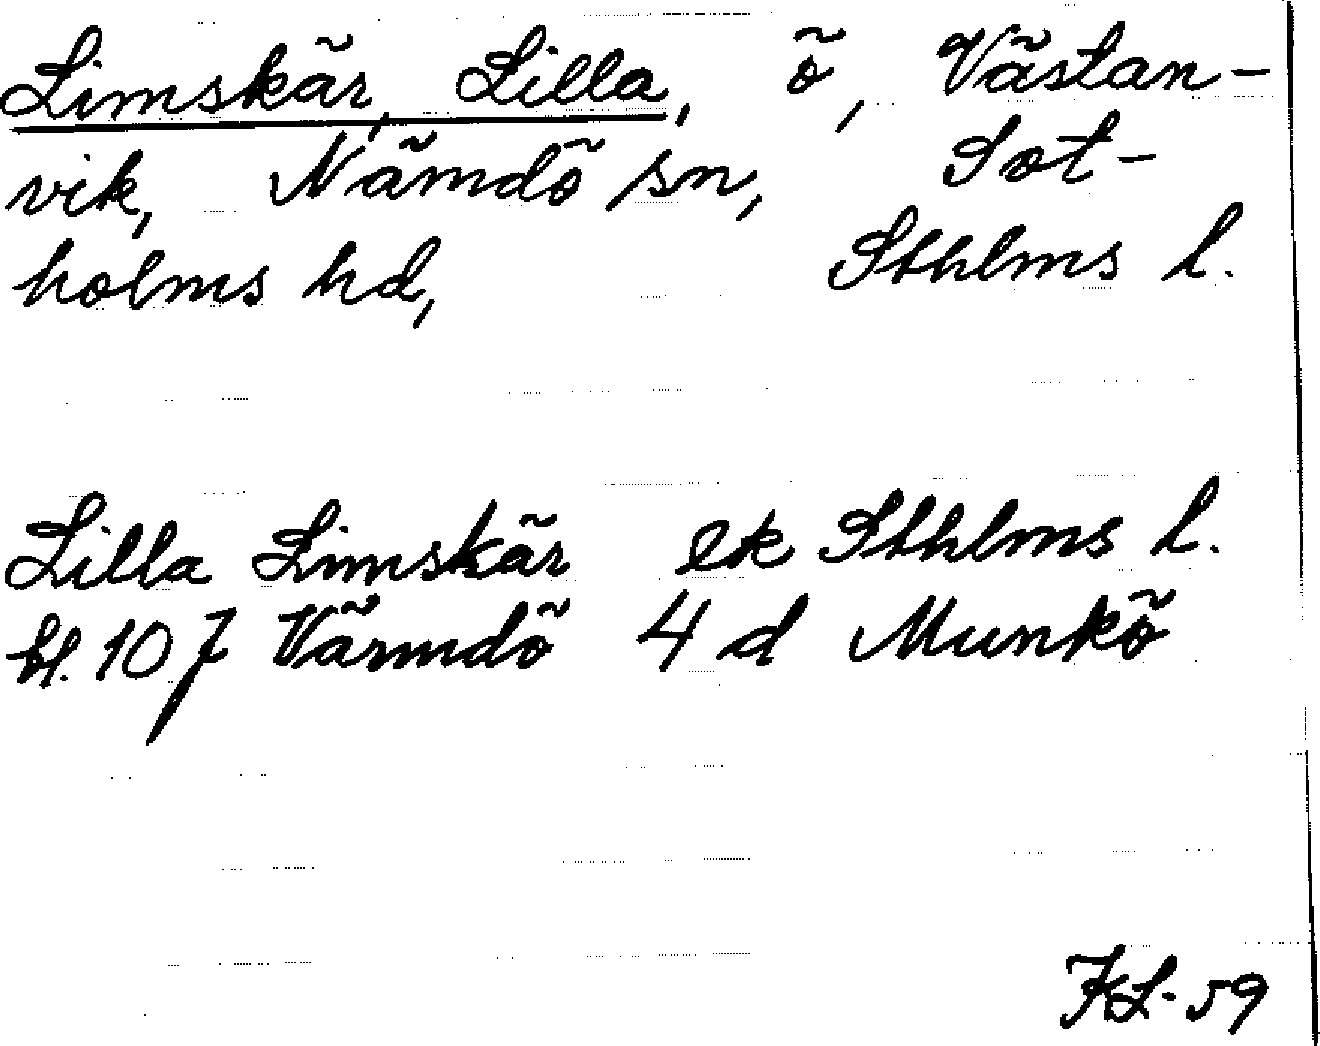 Limskär, Lilla, ö, Västan-
vik, Nämdö sn, Sot-
holms hd, Sthlms l.
Lilla Limskär ek Sthlms l.
bl. 107 Värmdö 4 d Munkö
KL-59